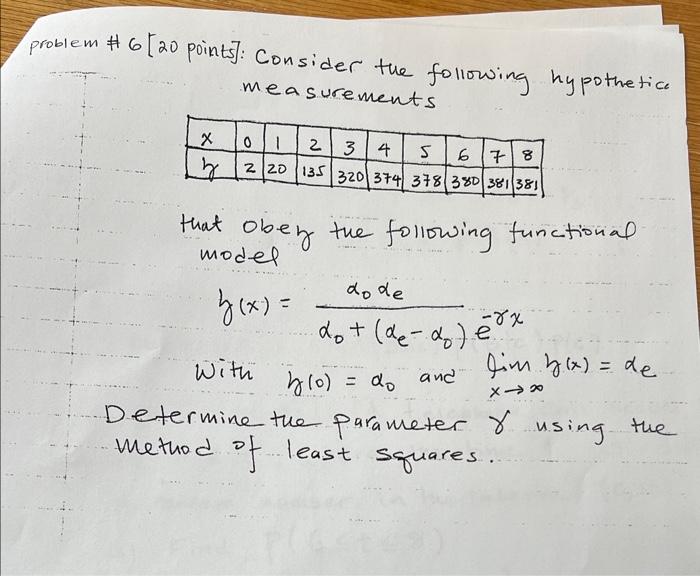 problem # 6 [20 points]: Consider the following hypothetica
measurements
x 0 1 2 3 4 5 6 7 8
y 2 20 135 320 374 378 380 381 381
that obey the following functional
model
y(x) = α₀ αe / α₀ + (αe - α₀) e^-γx
With y(0) = α₀ and lim x→∞ y(x) = αe
Determine the parameter γ using the
method of least squares.